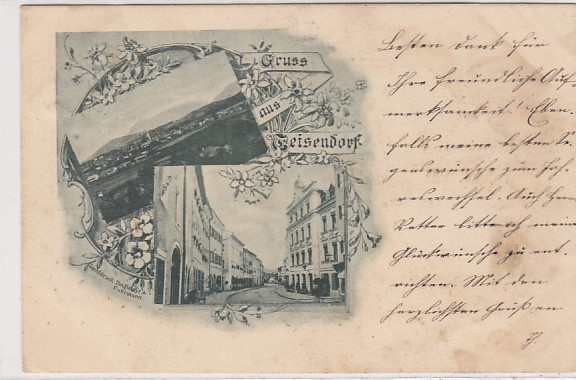 Gruss
aus
Teisendorf.
Besten Dank für
Ihre freundliche Auf-
merksamkeit! Eben-
falls meine besten Se-
genswünsche zum Jah-
reswechsel. Auch Herrn
Vetter bitte ich meine
Glückwünsche zu ent-
richten. Mit den
herzlichsten Grüßen